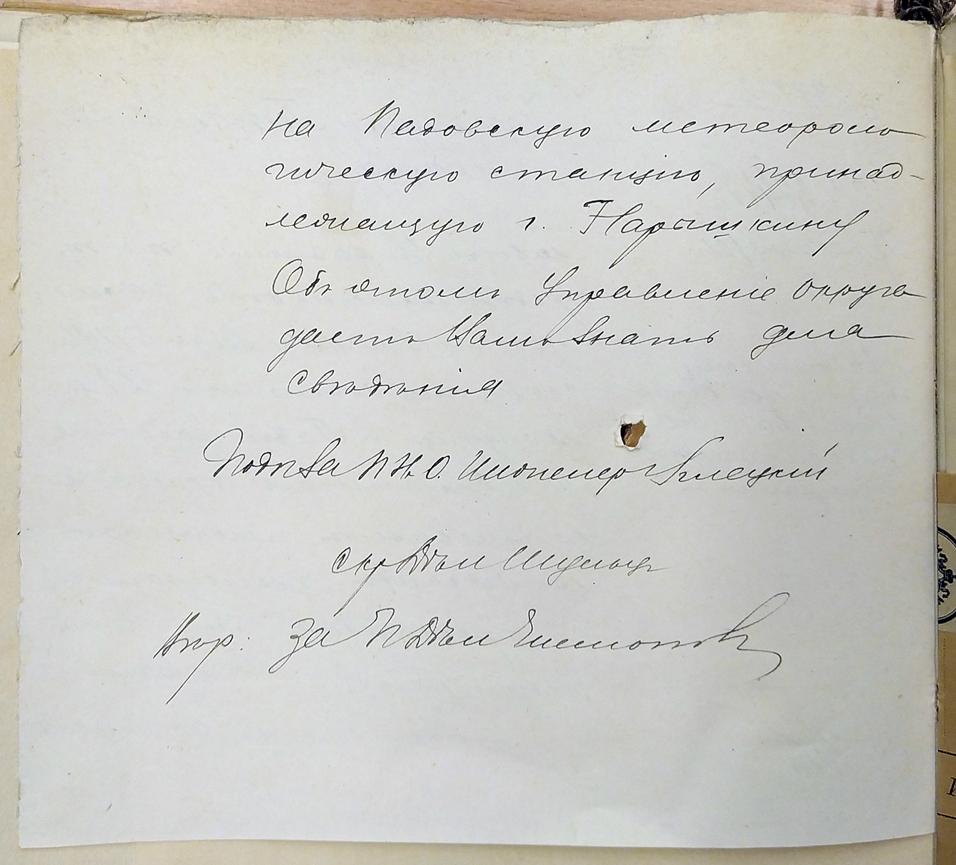 на Падовскую метеороло
гическую станцію, принад-
лежащую г. Нарышкину
Объ этомъ Управленіе Округа
даетъ Вамъ знать для
свѣдѣнія
Подп За П Н. О. Инженеръ
скр Дѣл Шульцъ
Вѣр: За П Дѣл